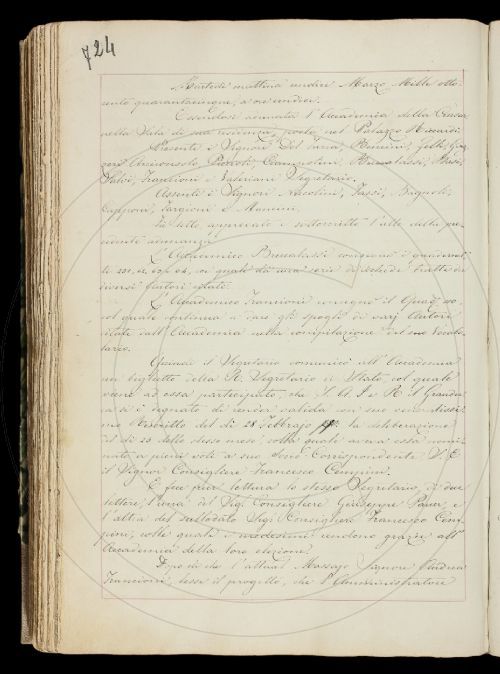 724
Martedì mattina undici Marzo Mille otto-
cento quarantacinque, a ore undici.
Essendosi adunata l'Accademia della Crusca
nella Sala di sua residenza, posta nel Palazzo Riccardi.
Presenti i Signori Del Furia, Rencini,
Arciconsolo Ciampolini, Brucalassi,
Salvi, Francioni e Valeriani Segretario.
Assenti i Signori Niccolini, Bagnoli,
Capponi, Targioni e Mancini.
Fu letto, approvato e sottoscritto l'atto della pre-
cedente adunanza.
L'Accademico Brucalassi consegnò i quaderni
di schede tratte da
diversi Autori citati.
L'Accademico Francioni consegnò il
col quale continua a dare gli spogli di varj Autori
citati dall'Accademia nella compilazione del suo Vocabo-
lario.
Quindi il Segretario comunicò all'Accademia
un biglietto della R. Segreteria di Stato, col quale
viene ad essa partecipato, che S. A. I. e R. il Grandu-
ca si è degnato di render valida con suo veneratissi-
mo Rescritto del dì 28 Febbrajo la deliberazione
del dì 25 dello stesso mese, colla quale aveva essa nomi-
nato a pieni voti a suo Socio Corrispondente S. E.
il Signor Consigliere Francesco Cempini.
E fece pur lettura lo stesso Segretario, di due
lettere, l'una del Sig. Consigliere Giuseppe Paver, e
l'altra del sullodato Sig. Consigliere Francesco Cem-
pini, colle quali i medesimi rendono grazie all'
Accademia della loro elezione.
Dopo di che l'attual Massajo Signore Andrea
Francioni, lesse il progetto, che l'Amministratore